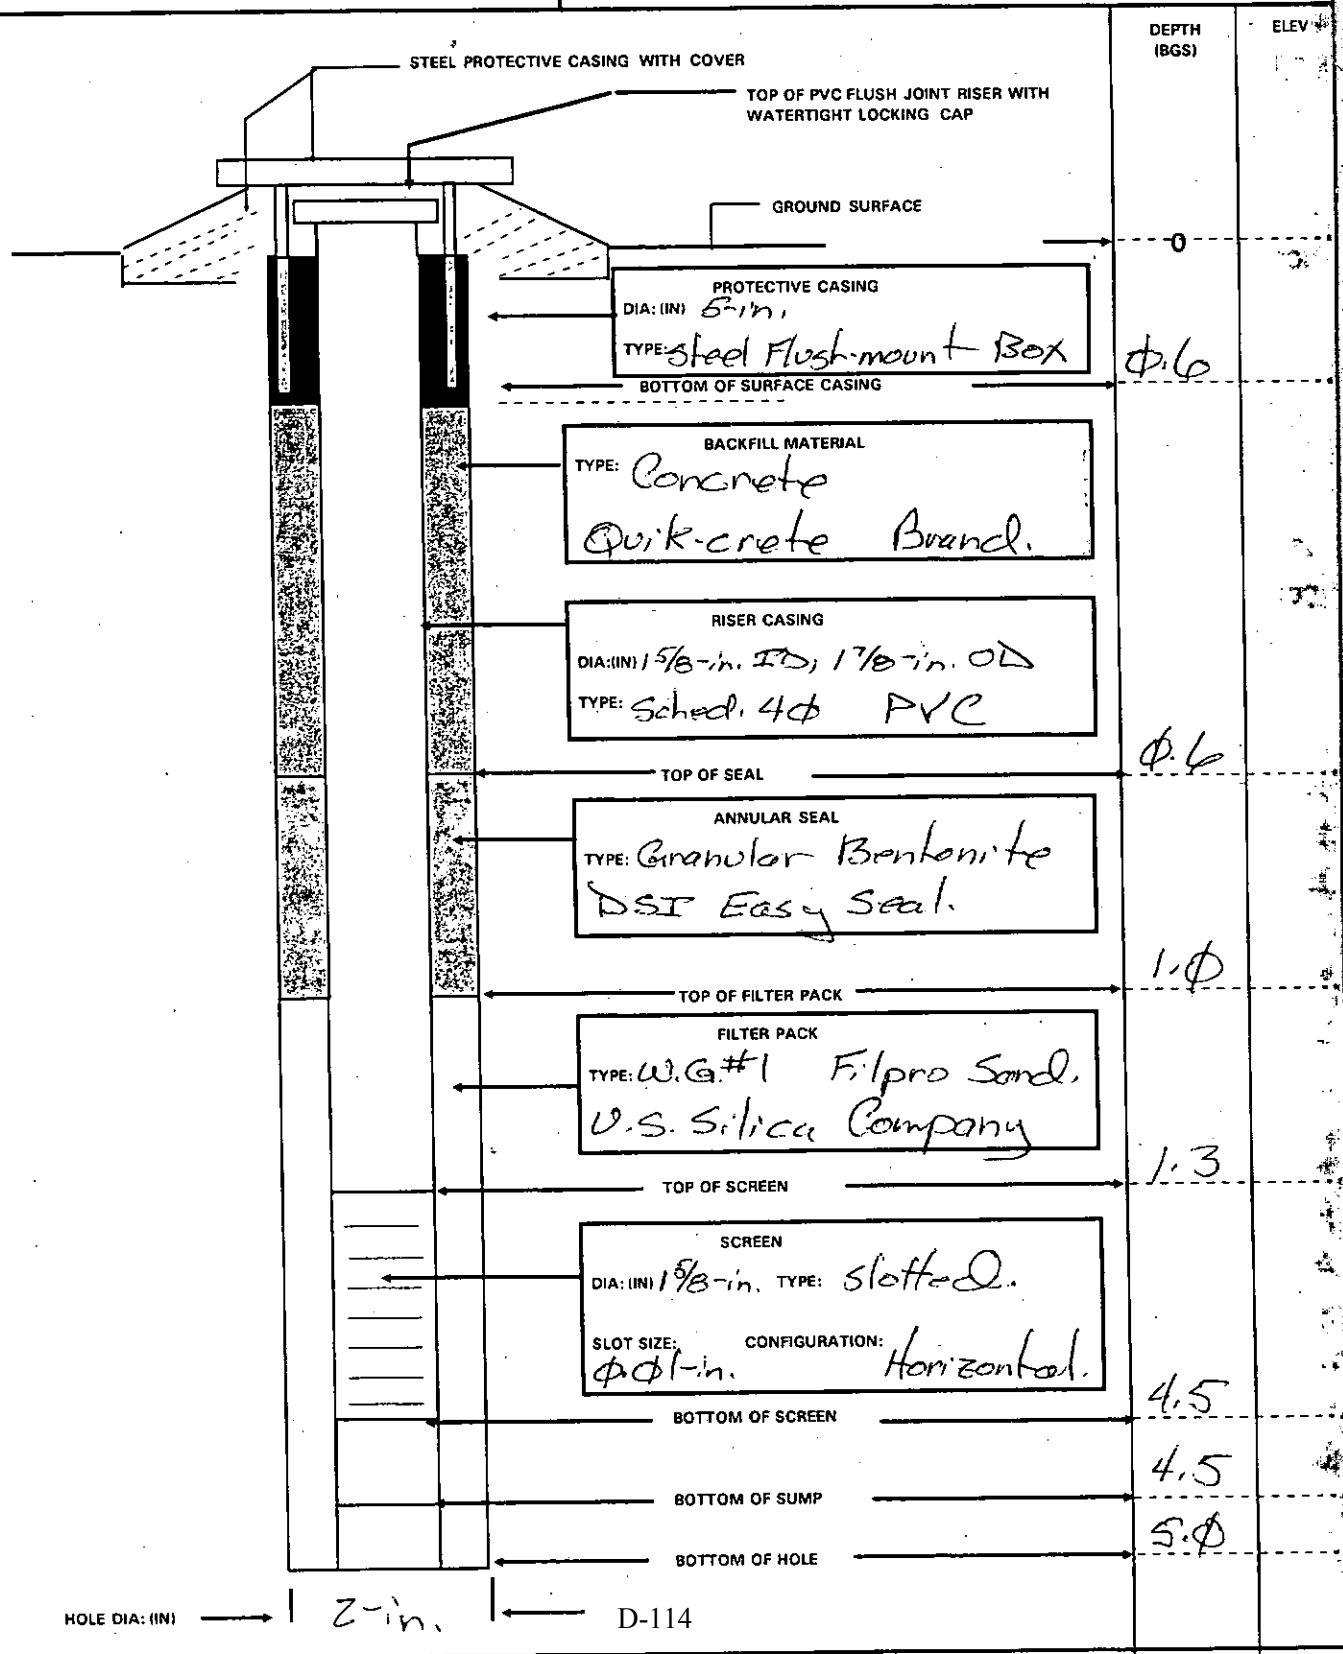 DEPTH
(BGS)
ELEV
STEEL PROTECTIVE CASING WITH COVER
TOP OF PVC FLUSH JOINT RISER WITH
WATERTIGHT LOCKING CAP
GROUND SURFACE
0
PROTECTIVE CASING
DIA: (IN) 5-in.
TYPE: Steel Flush-mount Box
0.6
BOTTOM OF SURFACE CASING
BACKFILL MATERIAL
TYPE: Concrete
Quik-crete Brand.
RISER CASING
DIA:(IN) 1 5/8-in. ID; 1 7/8-in. OD
TYPE: Sched. 40 PVC
0.6
TOP OF SEAL
ANNULAR SEAL
TYPE: Granular Bentonite
DSI Easy Seal.
1.0
TOP OF FILTER PACK
FILTER PACK
TYPE: W.G. #1 Filpro Sand.
U.S. Silica Company
1.3
TOP OF SCREEN
SCREEN
DIA: (IN) 1 5/8-in. TYPE: Slotted.
SLOT SIZE: CONFIGURATION:
0.01-in. Horizontal.
4.5
BOTTOM OF SCREEN
4.5
BOTTOM OF SUMP
5.0
BOTTOM OF HOLE
HOLE DIA: (IN) 2-in. D-114